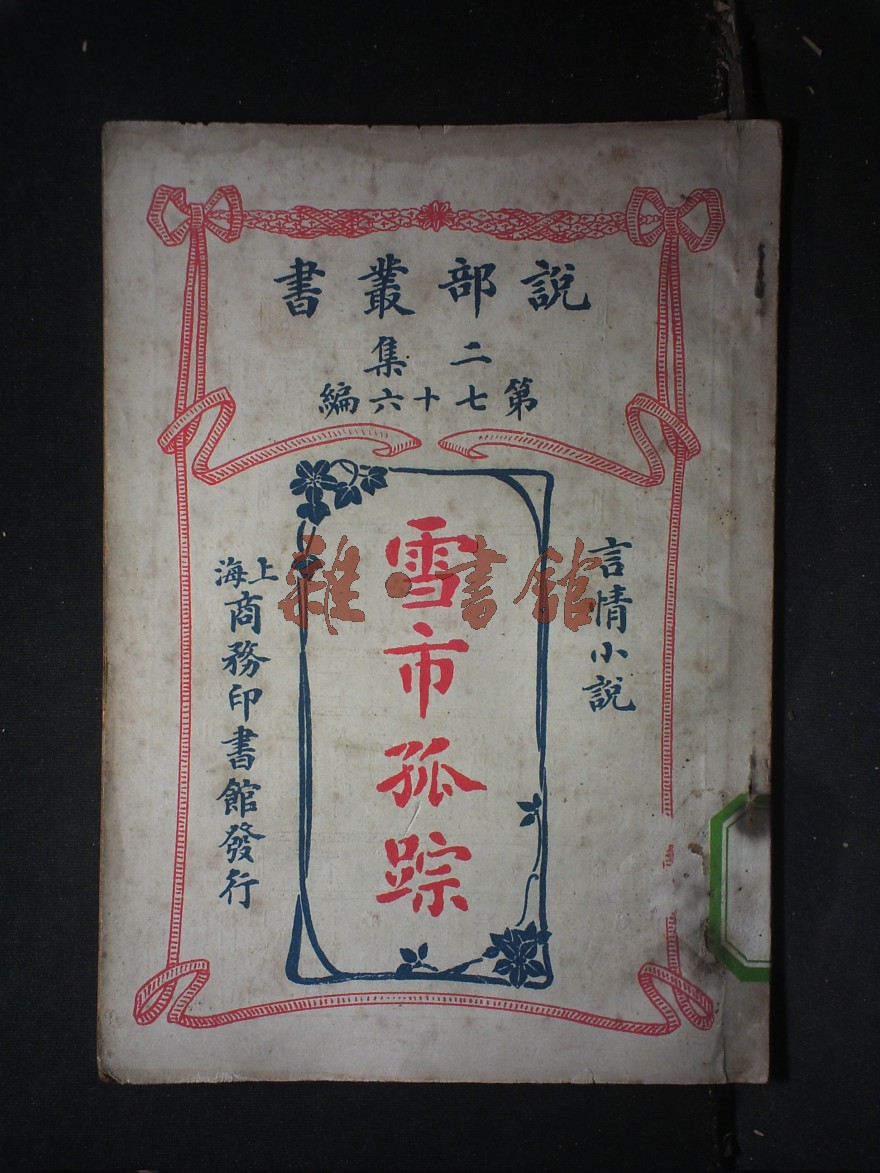 說部叢書
二集
第七十六編
言情小說
雪市孤踪
上海
商務印書館發行
雜·書館